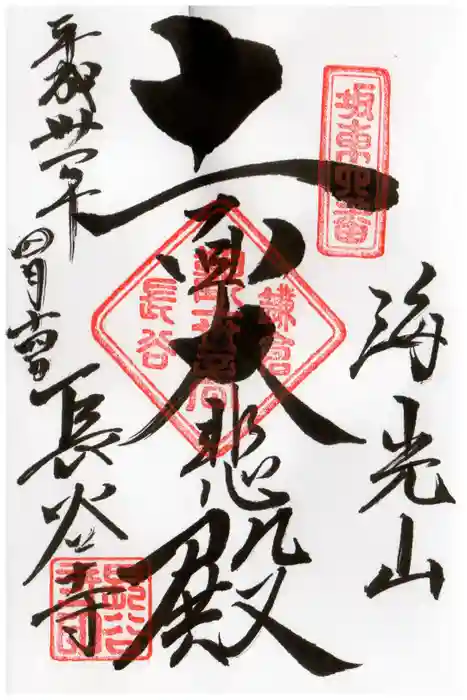 坂東四番
海光山
十一面大悲殿
鎌倉
長谷
平成卅一年
四月
長谷寺